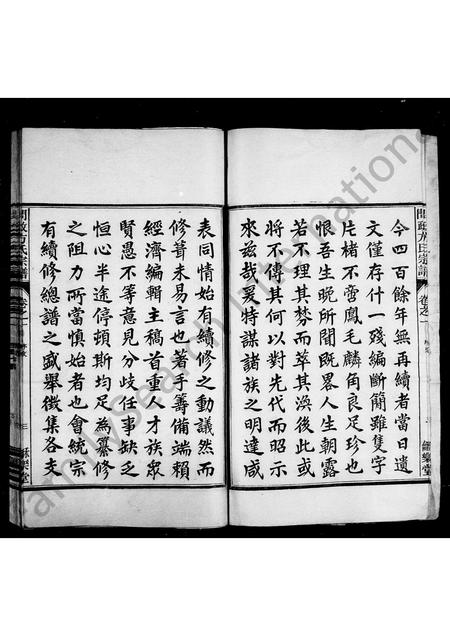 今四百餘年無再續者當日遺
文僅存什一殘編斷簡雖隻字
片楮不啻鳳毛麟角良足珍也
恨吾生晚所聞既畧人生朝露
若不理其棼而萃其渙後此或
將不傳其何以對先代而昭示
來茲哉爰特謀諸族之明達咸
表同情始有續修之動議然而
修葺未易言也著手籌備端賴
經濟編輯主稿首重人才族眾
賢愚不等意見分歧任事缺乏
恒心半途停頓斯均足為纂修
之阻力所當慎始者也會統宗
有續修總譜之盛舉徵集各支
方氏宗譜
卷之一
FamilySearch International